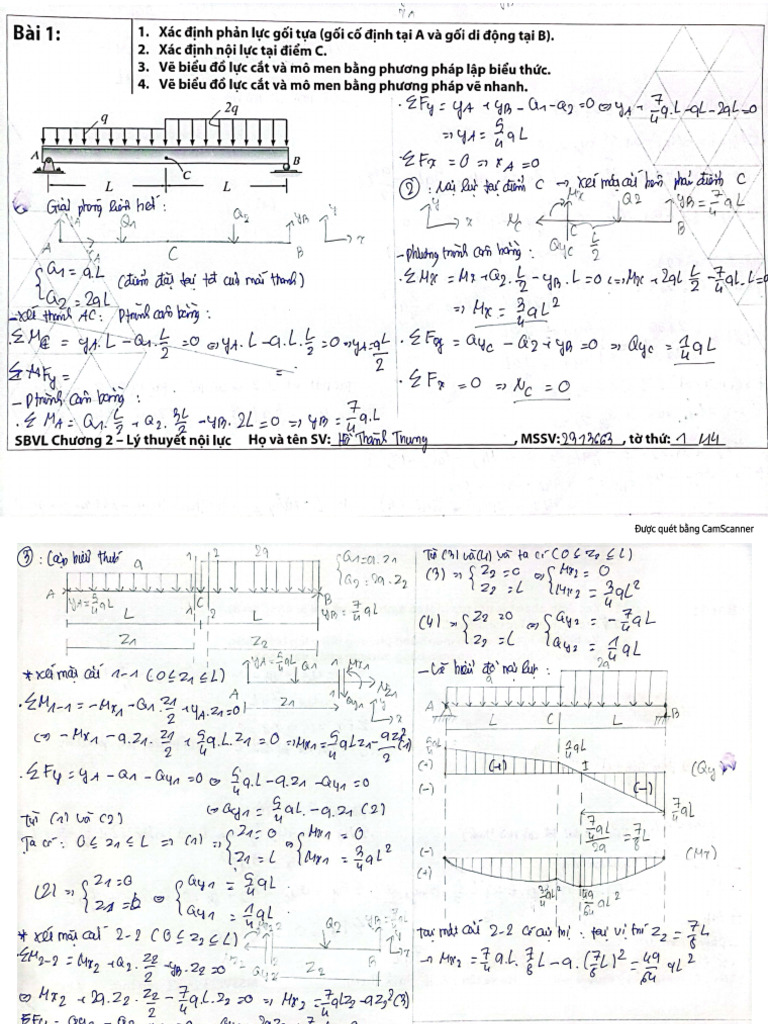 Bài 1:
1. Xác định phản lực gối tựa (gối cố định tại A và gối di động tại B).
2. Xác định nội lực tại điểm C.
3. Vẽ biểu đồ lực cắt và mô men bằng phương pháp lập biểu thức.
4. Vẽ biểu đồ lực cắt và mô men bằng phương pháp vẽ nhanh.
q 2q
A C B
L L
① Giải phóng liên kết:
A Q1 C Q2 B yB y x
{Q1 = qL
Q2 = 2qL
(điểm đặt tại tđ của mỗi thanh)
- Xét thanh AC: Ptrình cân bằng:
ΣMC = yA.L - Q1.L/2 = 0 ⇔ yA.L - q.L.L/2 = 0 ⇒ yA = qL/2
ΣFy =
- Ptrình cân bằng:
ΣMA = Q1.L/2 + Q2.3L/2 - yB.2L = 0 ⇒ yB = 7/4 q.L
ΣFy = yA + yB - Q1 - Q2 = 0 ⇔ yA + 7/4 q.L - qL - 2qL = 0
⇒ yA = 5/4 qL
ΣFx = 0 ⇒ xA = 0
② : Nội lực tại điểm C → xét mặt cắt bên phải điểm C
y x NC Mx Q2 yB = 7/4 qL
QyC C L/2 B
- Phương trình cân bằng:
ΣMx = Mx + Q2.L/2 - yB.L = 0 ⇔ Mx + 2qL L/2 - 7/4 qL.L = 0
⇒ Mx = 3/4 qL²
ΣFy = QyC - Q2 + yB = 0 ⇒ QyC = 1/4 qL
ΣFx = 0 ⇒ NC = 0
SBVL Chương 2 – Lý thuyết nội lực Họ và tên SV: Hồ Thành Trung, MSSV: 2913663, tờ thứ: 1
Được quét bằng CamScanner
③ : Lập biểu thức
q 1 2 2q
{Q1 = q.z1
Q2 = 2q.z2
A yA = 5/4 qL 1 C 2 B yB = 7/4 qL
L L
z1 z2
* Xét mặt cắt 1-1 (0 ≤ z1 ≤ L)
yA = 5/4 qL Q1 1 Mx1 Nz1
A z1 1 Qy1 y x
ΣM1-1 = -Mx1 - Q1.z1/2 + yA.z1 = 0
⇔ -Mx1 - q.z1.z1/2 + 5/4 q.L.z1 = 0 ⇒ Mx1 = 5/4 qLz1 - qz1²/2 (1)
ΣFy = yA - Q1 - Qy1 = 0 ⇔ 5/4 q.L - q.z1 - Qy1 = 0
⇔ Qy1 = 5/4 qL - q.z1 (2)
Từ (1) và (2)
Ta có: 0 ≤ z1 ≤ L ⇒ (1) ⇒ {z1 = 0
z1 = L
⇔ {Mx1 = 0
Mx1 = 3/4 qL²
(2) ⇒ {z1 = 0
z1 = L
⇔ {Qy1 = 5/4 qL
Qy1 = 1/4 qL
* Xét mặt cắt 2-2 (0 ≤ z2 ≤ L)
Mx2 Q2 yB = 7/4 qL y x
Qy2 z2 B
ΣM2-2 = Mx2 + Q2.z2/2 - yB.z2 = 0
⇔ Mx2 + 2q.z2.z2/2 - 7/4 q.L.z2 = 0 ⇒ Mx2 = 7/4 qLz2 - qz2² (3)
Từ (3) và (4) và ta có (0 ≤ z2 ≤ L)
(3) ⇒ {z2 = 0
z2 = L
⇔ {Mx2 = 0
Mx2 = 3/4 qL²
(4) ⇒ {z2 = 0
z2 = L
⇔ {Qy2 = -7/4 qL
Qy2 = 1/4 qL
- Vẽ biểu đồ nội lực:
q 2q
A L C L B
5/4 qL 1/4 qL
(+) (+) I (Qy)
(-) (-)
7/4 qL
7/4 qL / 2q = 7/8 L
(-) (Mx)
(+)
3/4 qL² 49/64 qL²
Tại mặt cắt 2-2 có cực trị: tại vị trí z2 = 7/8 L
→ Mx2 = 7/4 qL.7/8 L - q.(7/8 L)² = 49/64 qL²